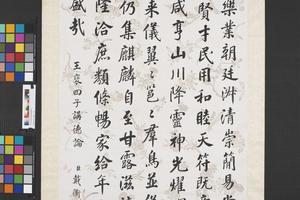 樂業朝廷淑清崇簡易
賢才民用和睦天符既
咸亨山川降靈神光耀
來儀翼〻邕〻群鳥並
仍集麒麟自至甘露滋
隆洽庶類條暢家給年
盛哉
王褒四子講德論
戴衢